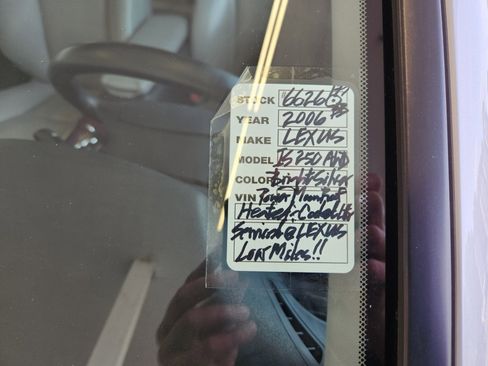 STOCK 6626B
YEAR 2006
MAKE LEXUS
MODEL IS 250 AWD
COLOR Bright Silver
VIN Power Moonroof
Heated-Cooled Lthr
Serviced @ LEXUS
Low Miles!!